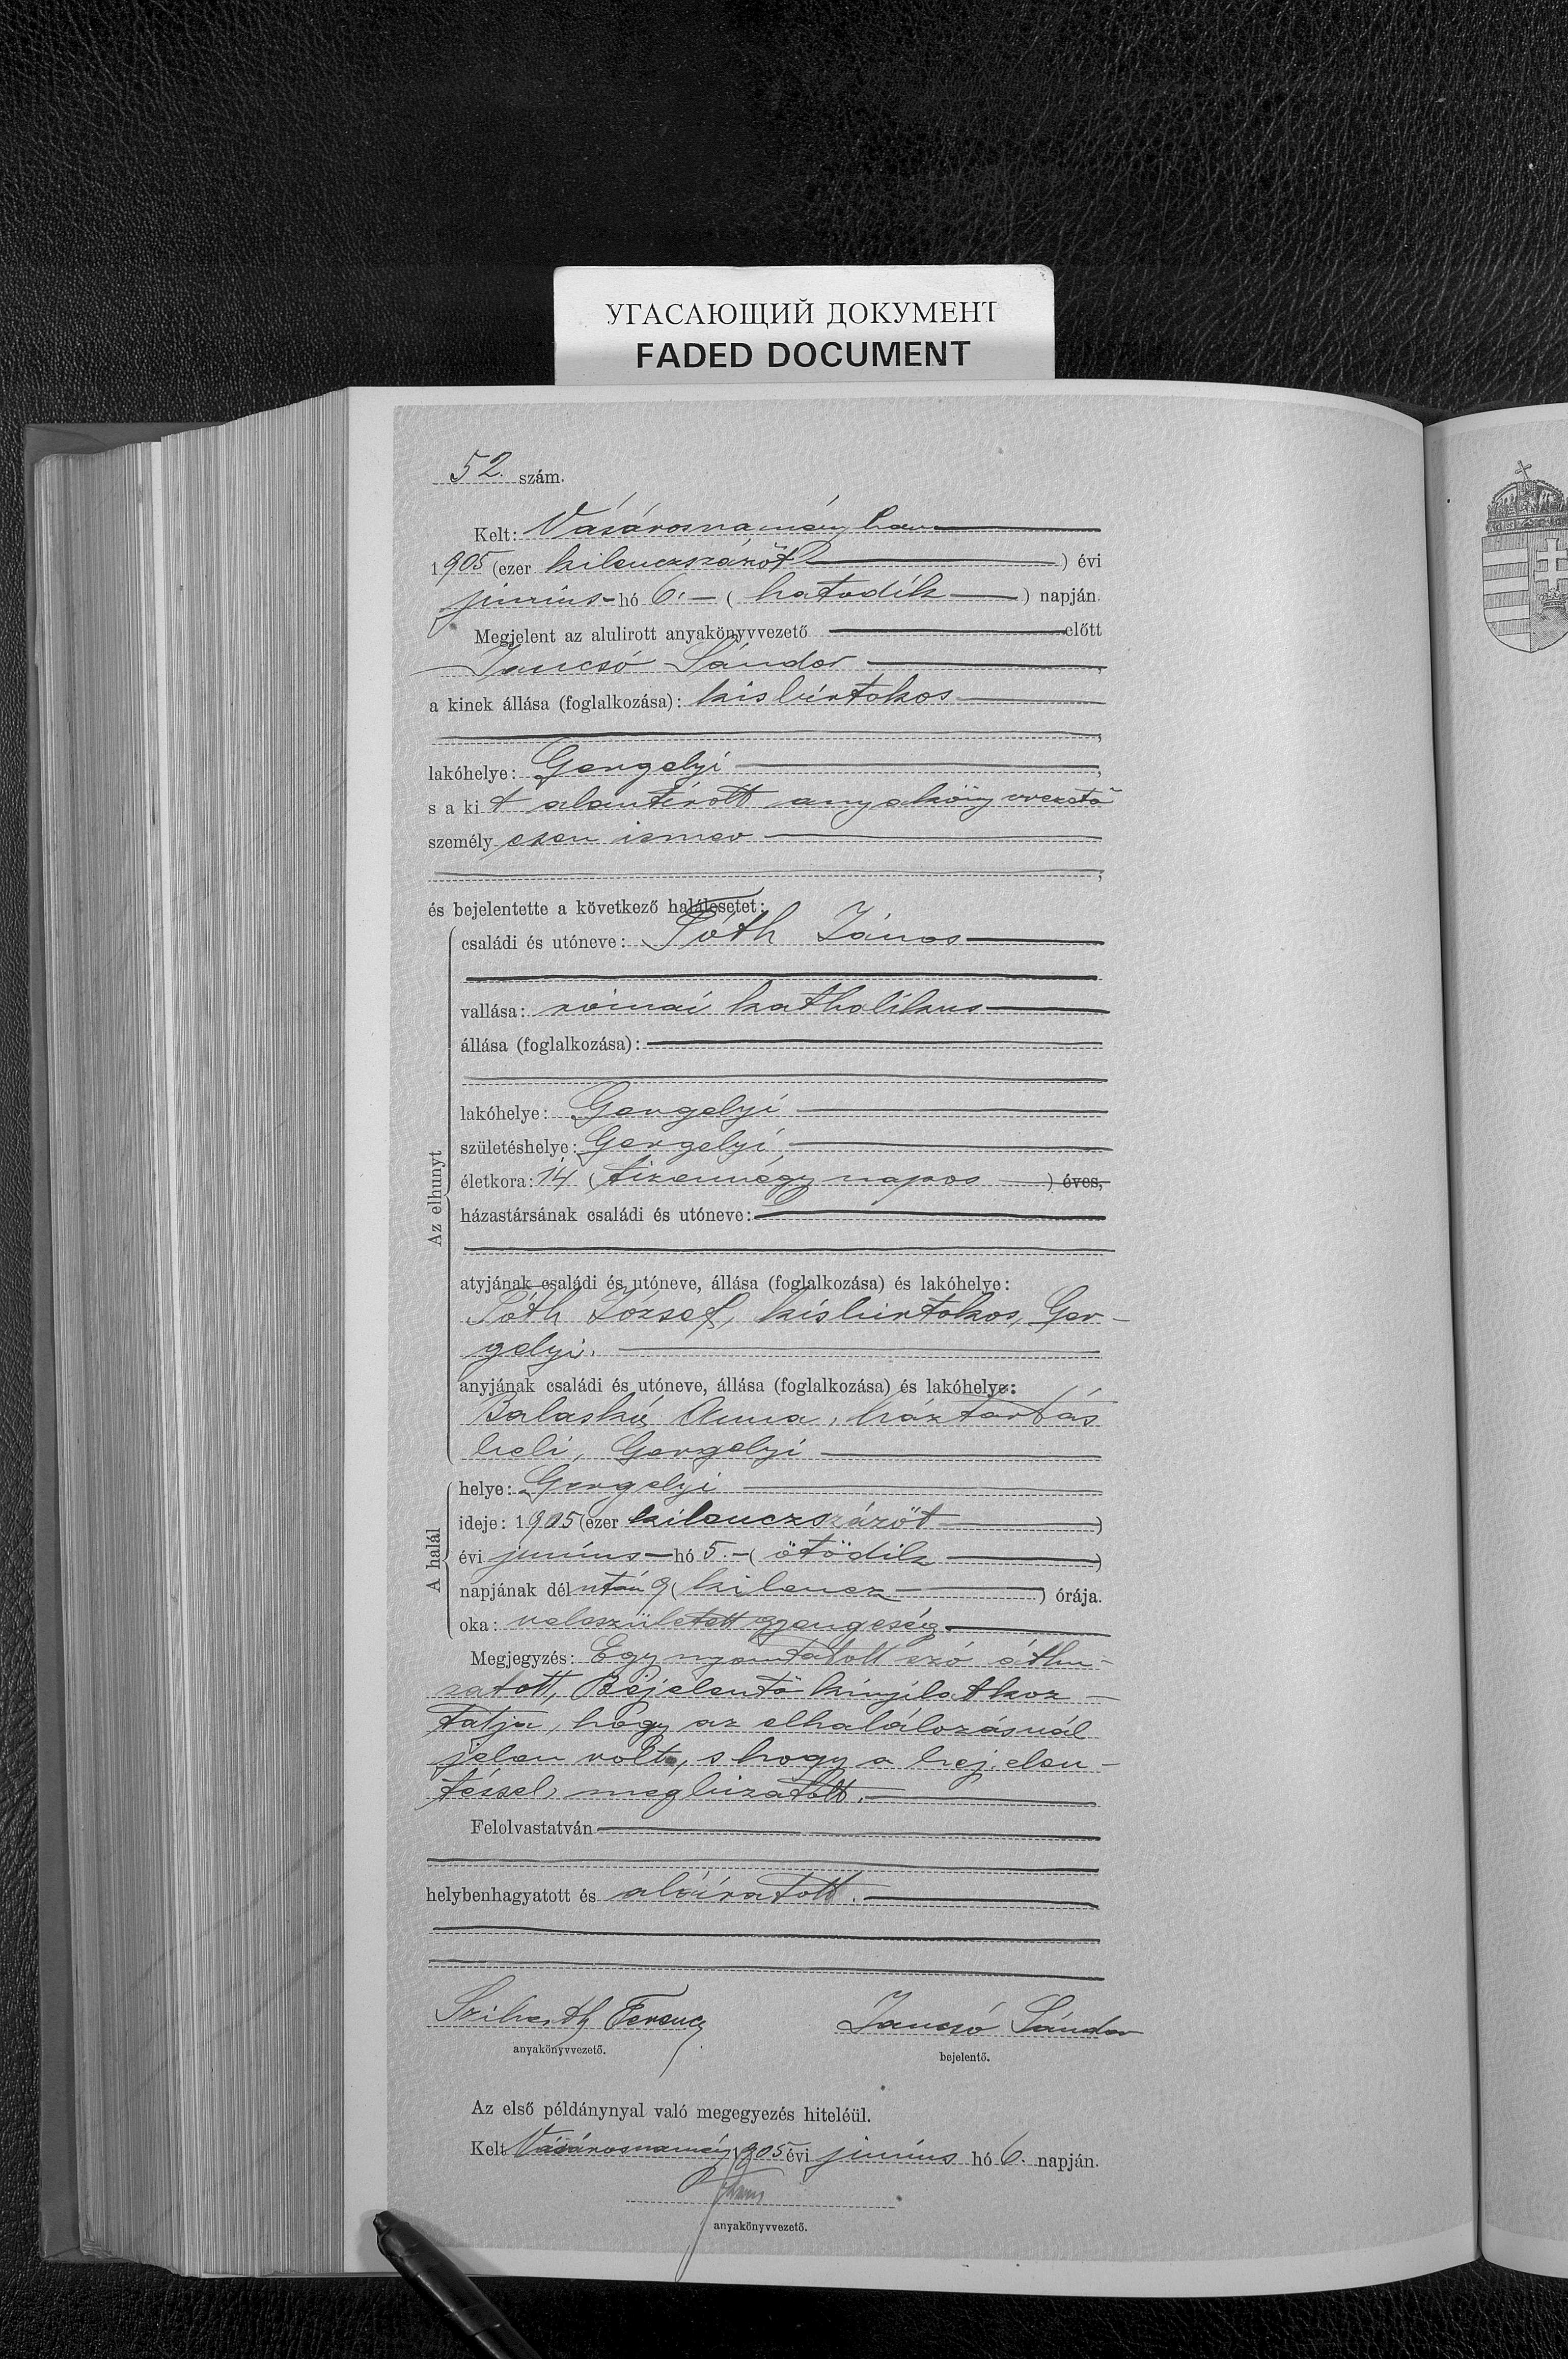 УГАСАЮЩИЙ ДОКУМЕНТ
FADED DOCUMENT
52. szám.
Kelt: Vásárosnaményban
1905 (ezer kilenczszázöt) évi
junius hó 6. (hatodik) napján.
Megjelent az alulirott anyakönyvvezető előtt
Jancsó Sándor,
a kinek állása (foglalkozása): kisbirtokos
lakóhelye: Gergelyi,
s a kit alantirott anyakönyvvezető
személyesen ismer
és bejelentette a következő halálesetet:
Az elhunyt
családi és utóneve: Tóth János
vallása: római katholikus
állása (foglalkozása):
lakóhelye: Gergelyi
születéshelye: Gergelyi
életkora: 14 (tizennégy napos) éves,
házastársának családi és utóneve:
atyjának családi és utóneve, állása (foglalkozása) és lakóhelye:
Tóth József, kisbirtokos, Ger-
gelyi.
anyjának családi és utóneve, állása (foglalkozása) és lakóhelye:
Anna, háztartás
beli, Gergelyi
A halál
helye: Gergelyi
ideje: 1905 (ezer kilenczszázöt)
évi junius hó 5. (ötödik)
napjának délután 9 (kilencz) órája.
oka: veleszületett gyengeség
Megjegyzés: Egy nyomtatott szó áthu-
zatott, Bejelentő kinyilatkoz-
tatja, hogy az elhalálozásnál
jelen volt, s hogy a bejelen-
téssel megbizatott.
Felolvastatván
helybenhagyatott és aláiratott.
Ferencz Jancsó Sándor
anyakönyvvezető. bejelentő.
Az első példánynyal való megegyezés hiteléül.
Kelt Vásárosnamény 1905 évi junius hó 6. napján.
anyakönyvvezető.